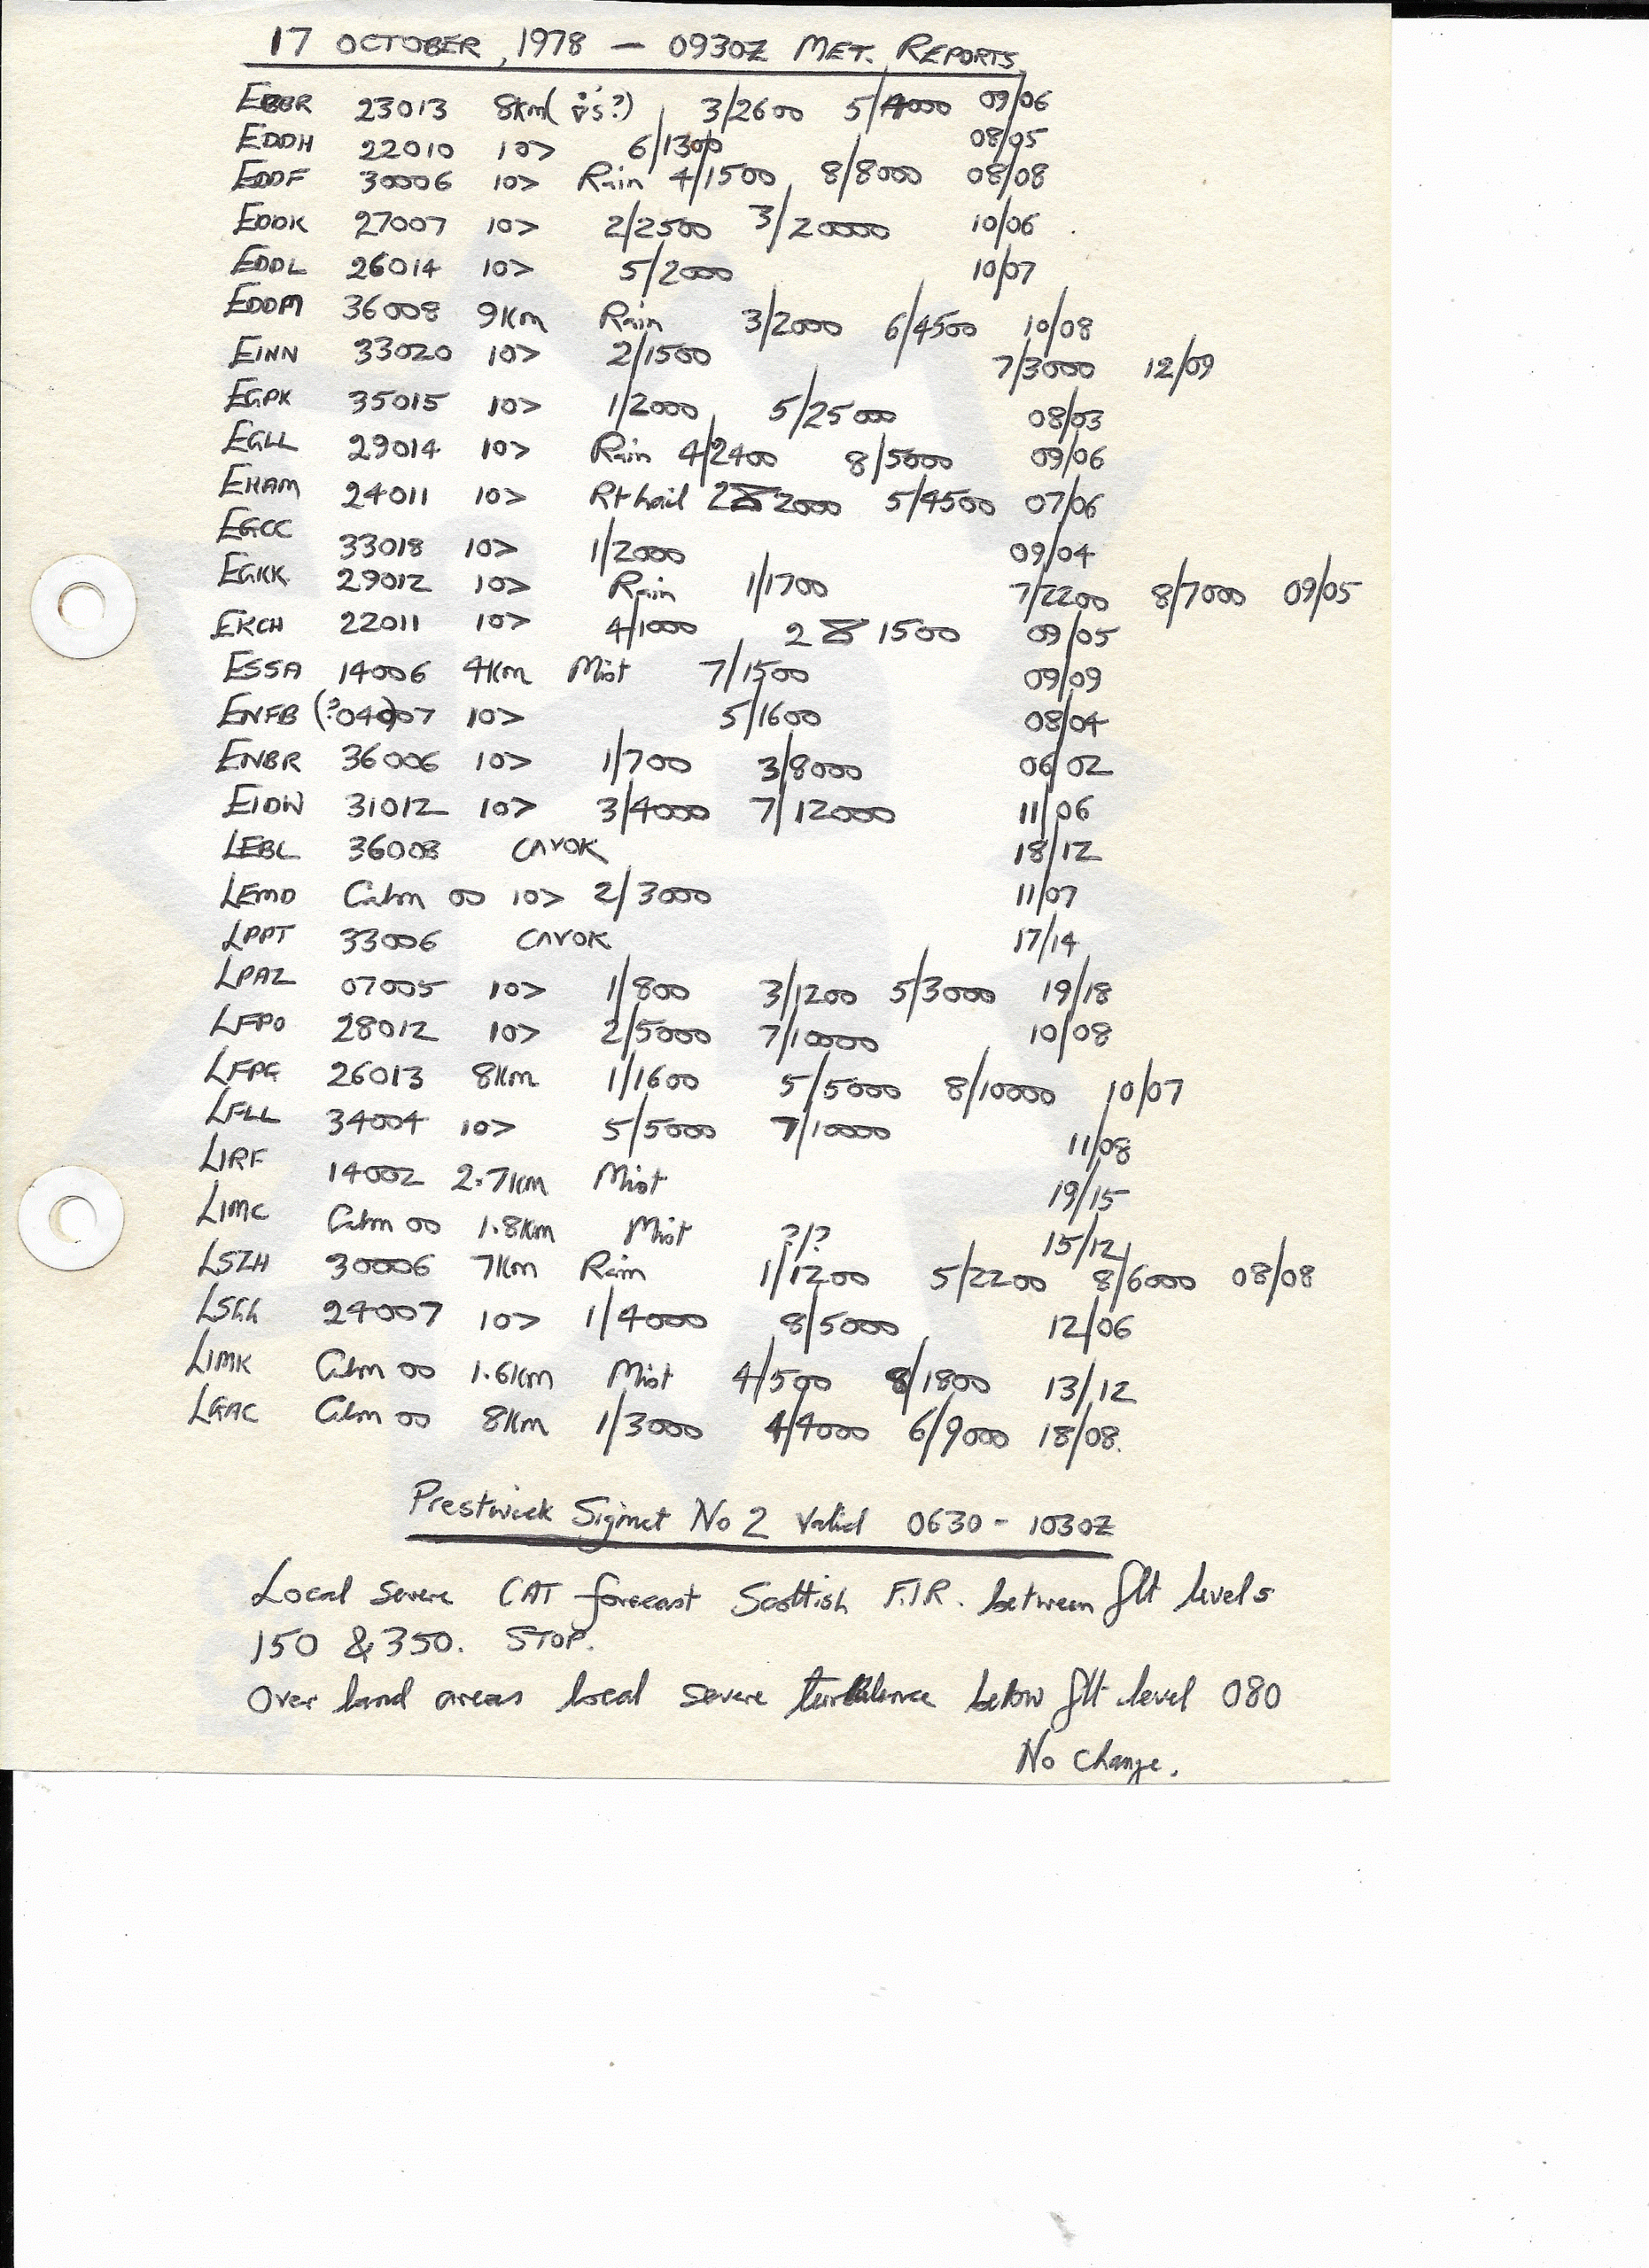 17 OCTOBER, 1978 — 0930Z MET. REPORTS
EBBR 23013 8Km ( ?) 3/2600 5/4000 09/06
EDDH 22010 10> 6/1300 08/05
EDDF 30006 10> Rain 4/1500 8/8000 08/08
EDDK 27007 10> 2/2500 3/20000 10/06
EDDL 26014 10> 5/2000 10/07
EDDM 36008 9Km Rain 3/2000 6/4500 10/08
EINN 33020 10> 2/1500 7/3000 12/09
EGPK 35015 10> 1/2000 5/25000 08/03
EGLL 29014 10> Rain 4/2400 8/5000 09/06
EHAM 24011 10> R+hail 2 2000 5/4500 07/06
EGCC 33018 10> 1/2000 09/04
EGKK 29012 10> Rain 1/1700 7/2200 8/7000 09/05
EKCH 22011 10> 4/1000 2 1500 09/05
ESSA 14006 4Km Mist 7/1500 09/09
ENFB (?04007) 10> 5/1600 08/04
ENBR 36006 10> 1/700 3/8000 06/02
EIDW 31012 10> 3/4000 7/12000 11/06
LEBL 36008 CAVOK 18/12
LEMD Calm 00 10> 2/3000 11/07
LPPT 33006 CAVOK 17/14
LPAZ 07005 10> 1/800 3/1200 5/3000 19/18
LFPO 28012 10> 2/5000 7/10000 10/08
LFPG 26013 8Km 1/1600 5/5000 8/10000 10/07
LFLL 34004 10> 5/5000 7/10000 11/08
LIRF 14002 2.7Km Mist 19/15
LIMC Calm 00 1.8Km Mist ?/? 15/12
LSZH 30006 7Km Rain 1/1200 5/2200 8/6000 08/08
LSGG 24007 10> 1/4000 8/5000 12/06
LIMK Calm 00 1.6Km Mist 4/500 8/1800 13/12
LGAC Calm 00 8Km 1/3000 4/4000 6/9000 18/08.
Prestwick Sigmet No 2 Valid 0630 - 1030Z
Local severe CAT forecast Scottish F.I.R. between flt levels
150 & 350. STOP.
Over land areas local severe turbulence below flt level 080
No Change.